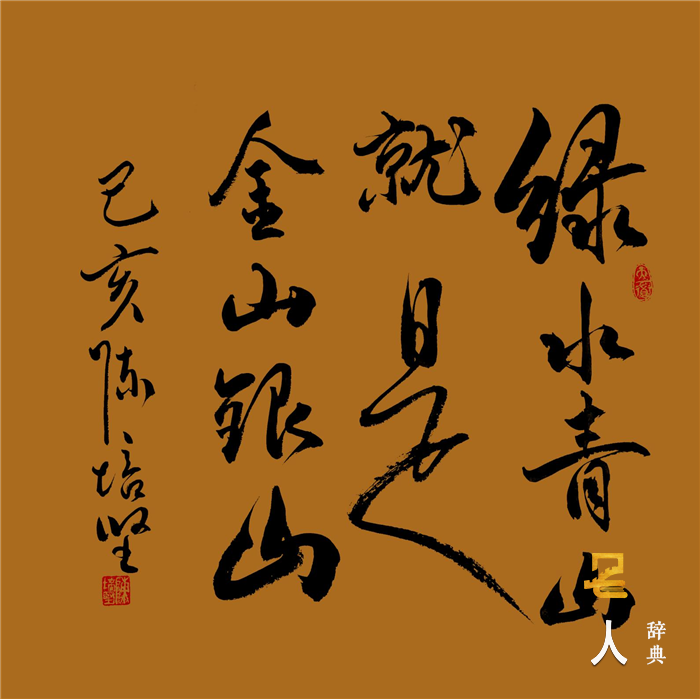 绿水青山
就是
金山银山
己亥陈培坚
名人
辞典